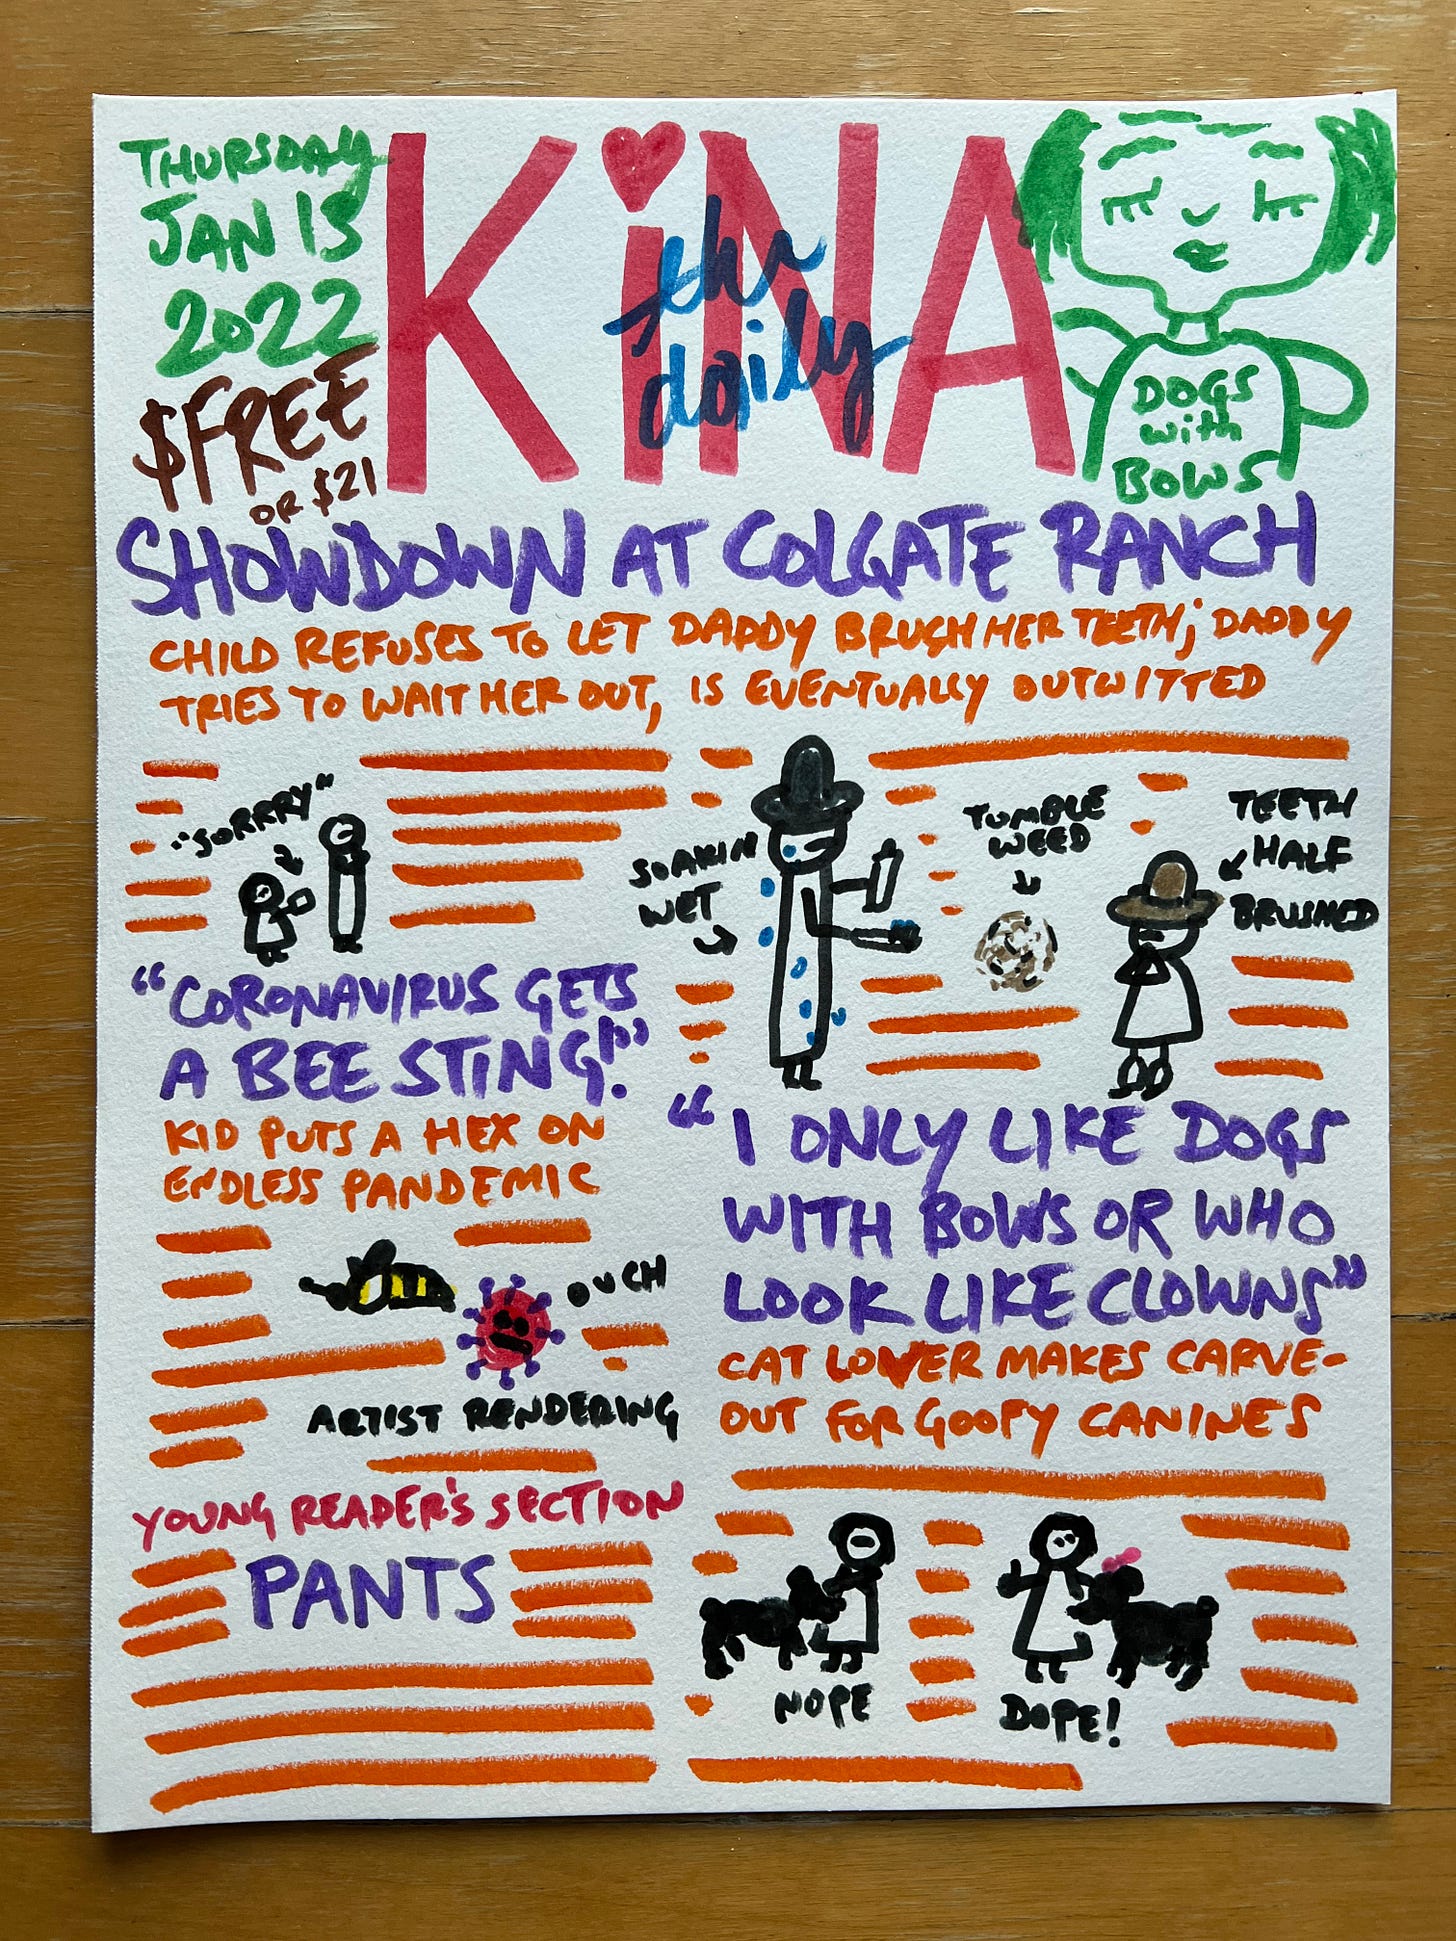 THURSDAY
JAN 13
2022
$FREE
OR $21
KiNA
the
daily
DOGS
with
BOWS
SHOWDOWN AT COLGATE RANCH
CHILD REFUSES TO LET DADDY BRUSH HER TEETH; DADDY
TRIES TO WAIT HER OUT, IS EVENTUALLY OUTWITTED
"SORRRY"
SOAKIN
WET
TUMBLE
WEED
TEETH
HALF
BRUSHED
"CORONAVIRUS GETS
A BEE STING!"
KID PUTS A HEX ON
ENDLESS PANDEMIC
OUCH
ARTIST RENDERING
"I ONLY LIKE DOGS
WITH BOWS OR WHO
LOOK LIKE CLOWNS"
CAT LOVER MAKES CARVE-
OUT FOR GOOFY CANINES
NOPE
DOPE!
YOUNG READER'S SECTION
PANTS